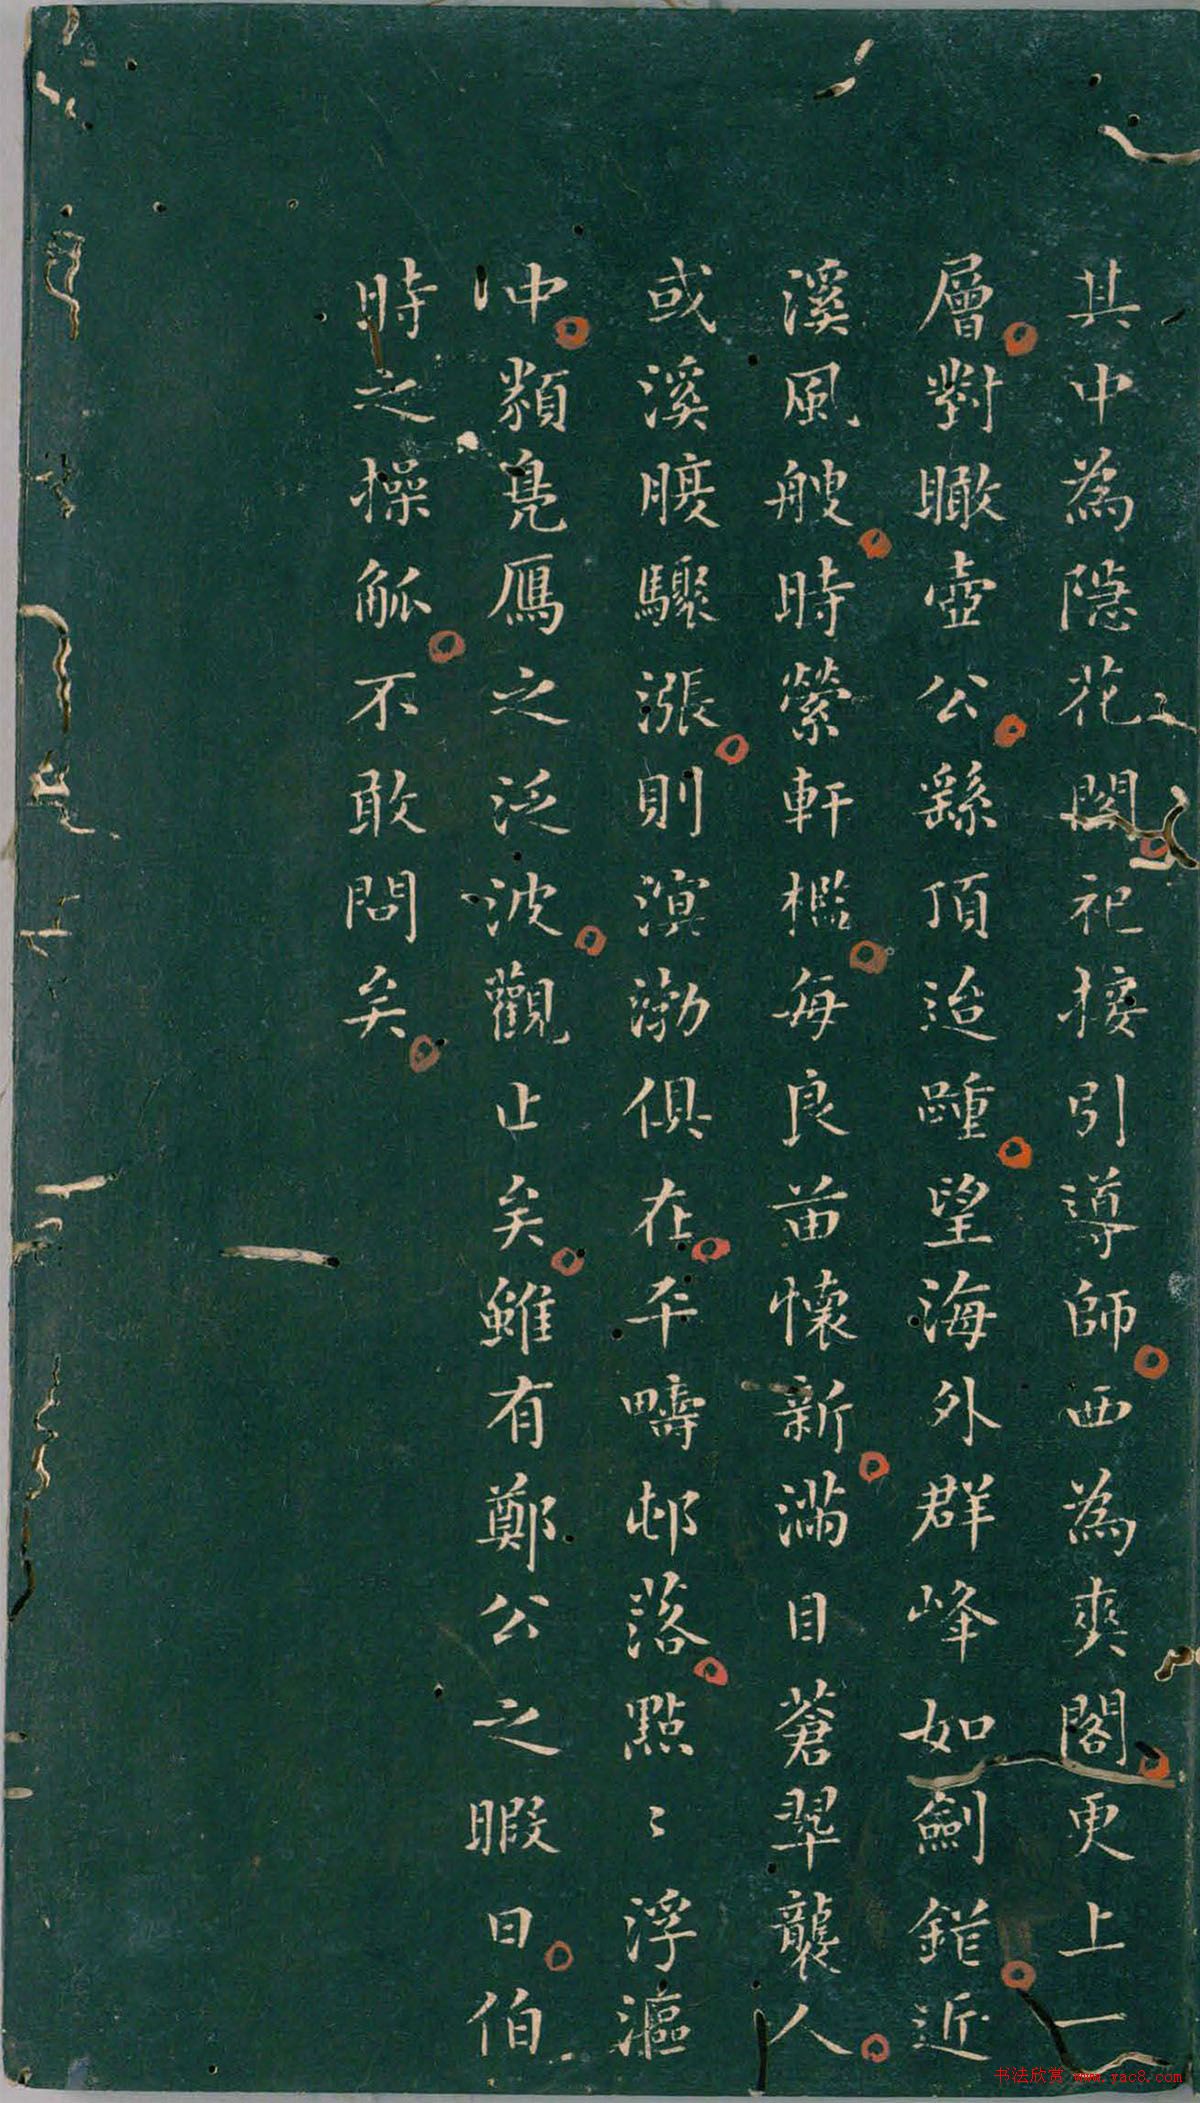 其中為隱花閣祀接引導師西為爽閣更上一
層對瞰壺公繇頂迨踵望海外群峰如劍鋩近
溪風艘時縈軒檻每良苗懷新滿目蒼翠襲人
或溪腠驟漲則溟渤俱在平疇邨落點〻浮漚
中類鳧鴈之泛波觀止矣雖有鄭公之暇日伯
時之操觚不敢問矣
书法欣赏 www.yac8.com